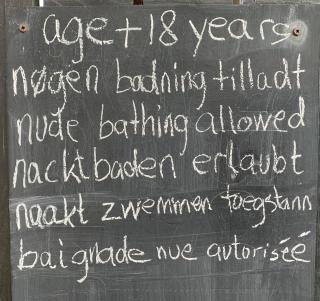 age +18 years
nøgen badning tilladt
nude bathing allowed
nacktbaden erlaubt
naakt zwemmen toegstann
baignade nue autorisée